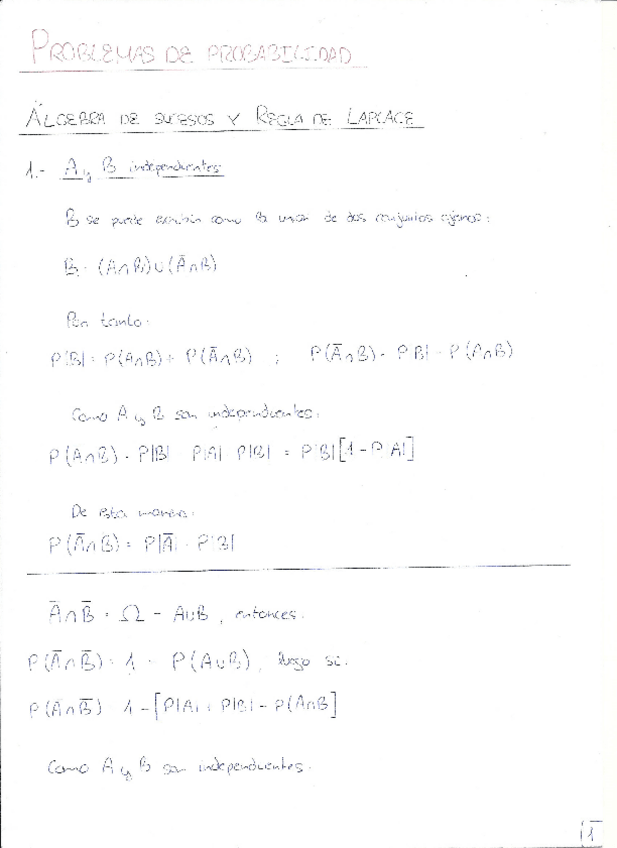 PROBLEMAS DE PROBABILIDAD
ÁLGEBRA DE SUCESOS Y REGLA DE LAPLACE
1.- A y B independientes
B se puede escribir como la unión de dos conjuntos ajenos:
B = (A∩B)∪(A̅∩B)
Por tanto:
P|B| = P(A∩B) + P(A̅∩B) ; P(A̅∩B) = P|B| - P(A∩B)
Como A y B son independientes:
P(A̅∩B) = P|B| - P|A| · P|B| = P|B| [1 - P|A|]
De esta manera:
P(A̅∩B) = P|A̅| · P|B|
A̅∩B̅ = Ω - A∪B , entonces:
P(A̅∩B̅) = 1 - P(A∪B), luego si:
P(A̅∩B̅) = 1 - [P|A| + P|B| - P(A∩B]
Como A y B son independientes:
1